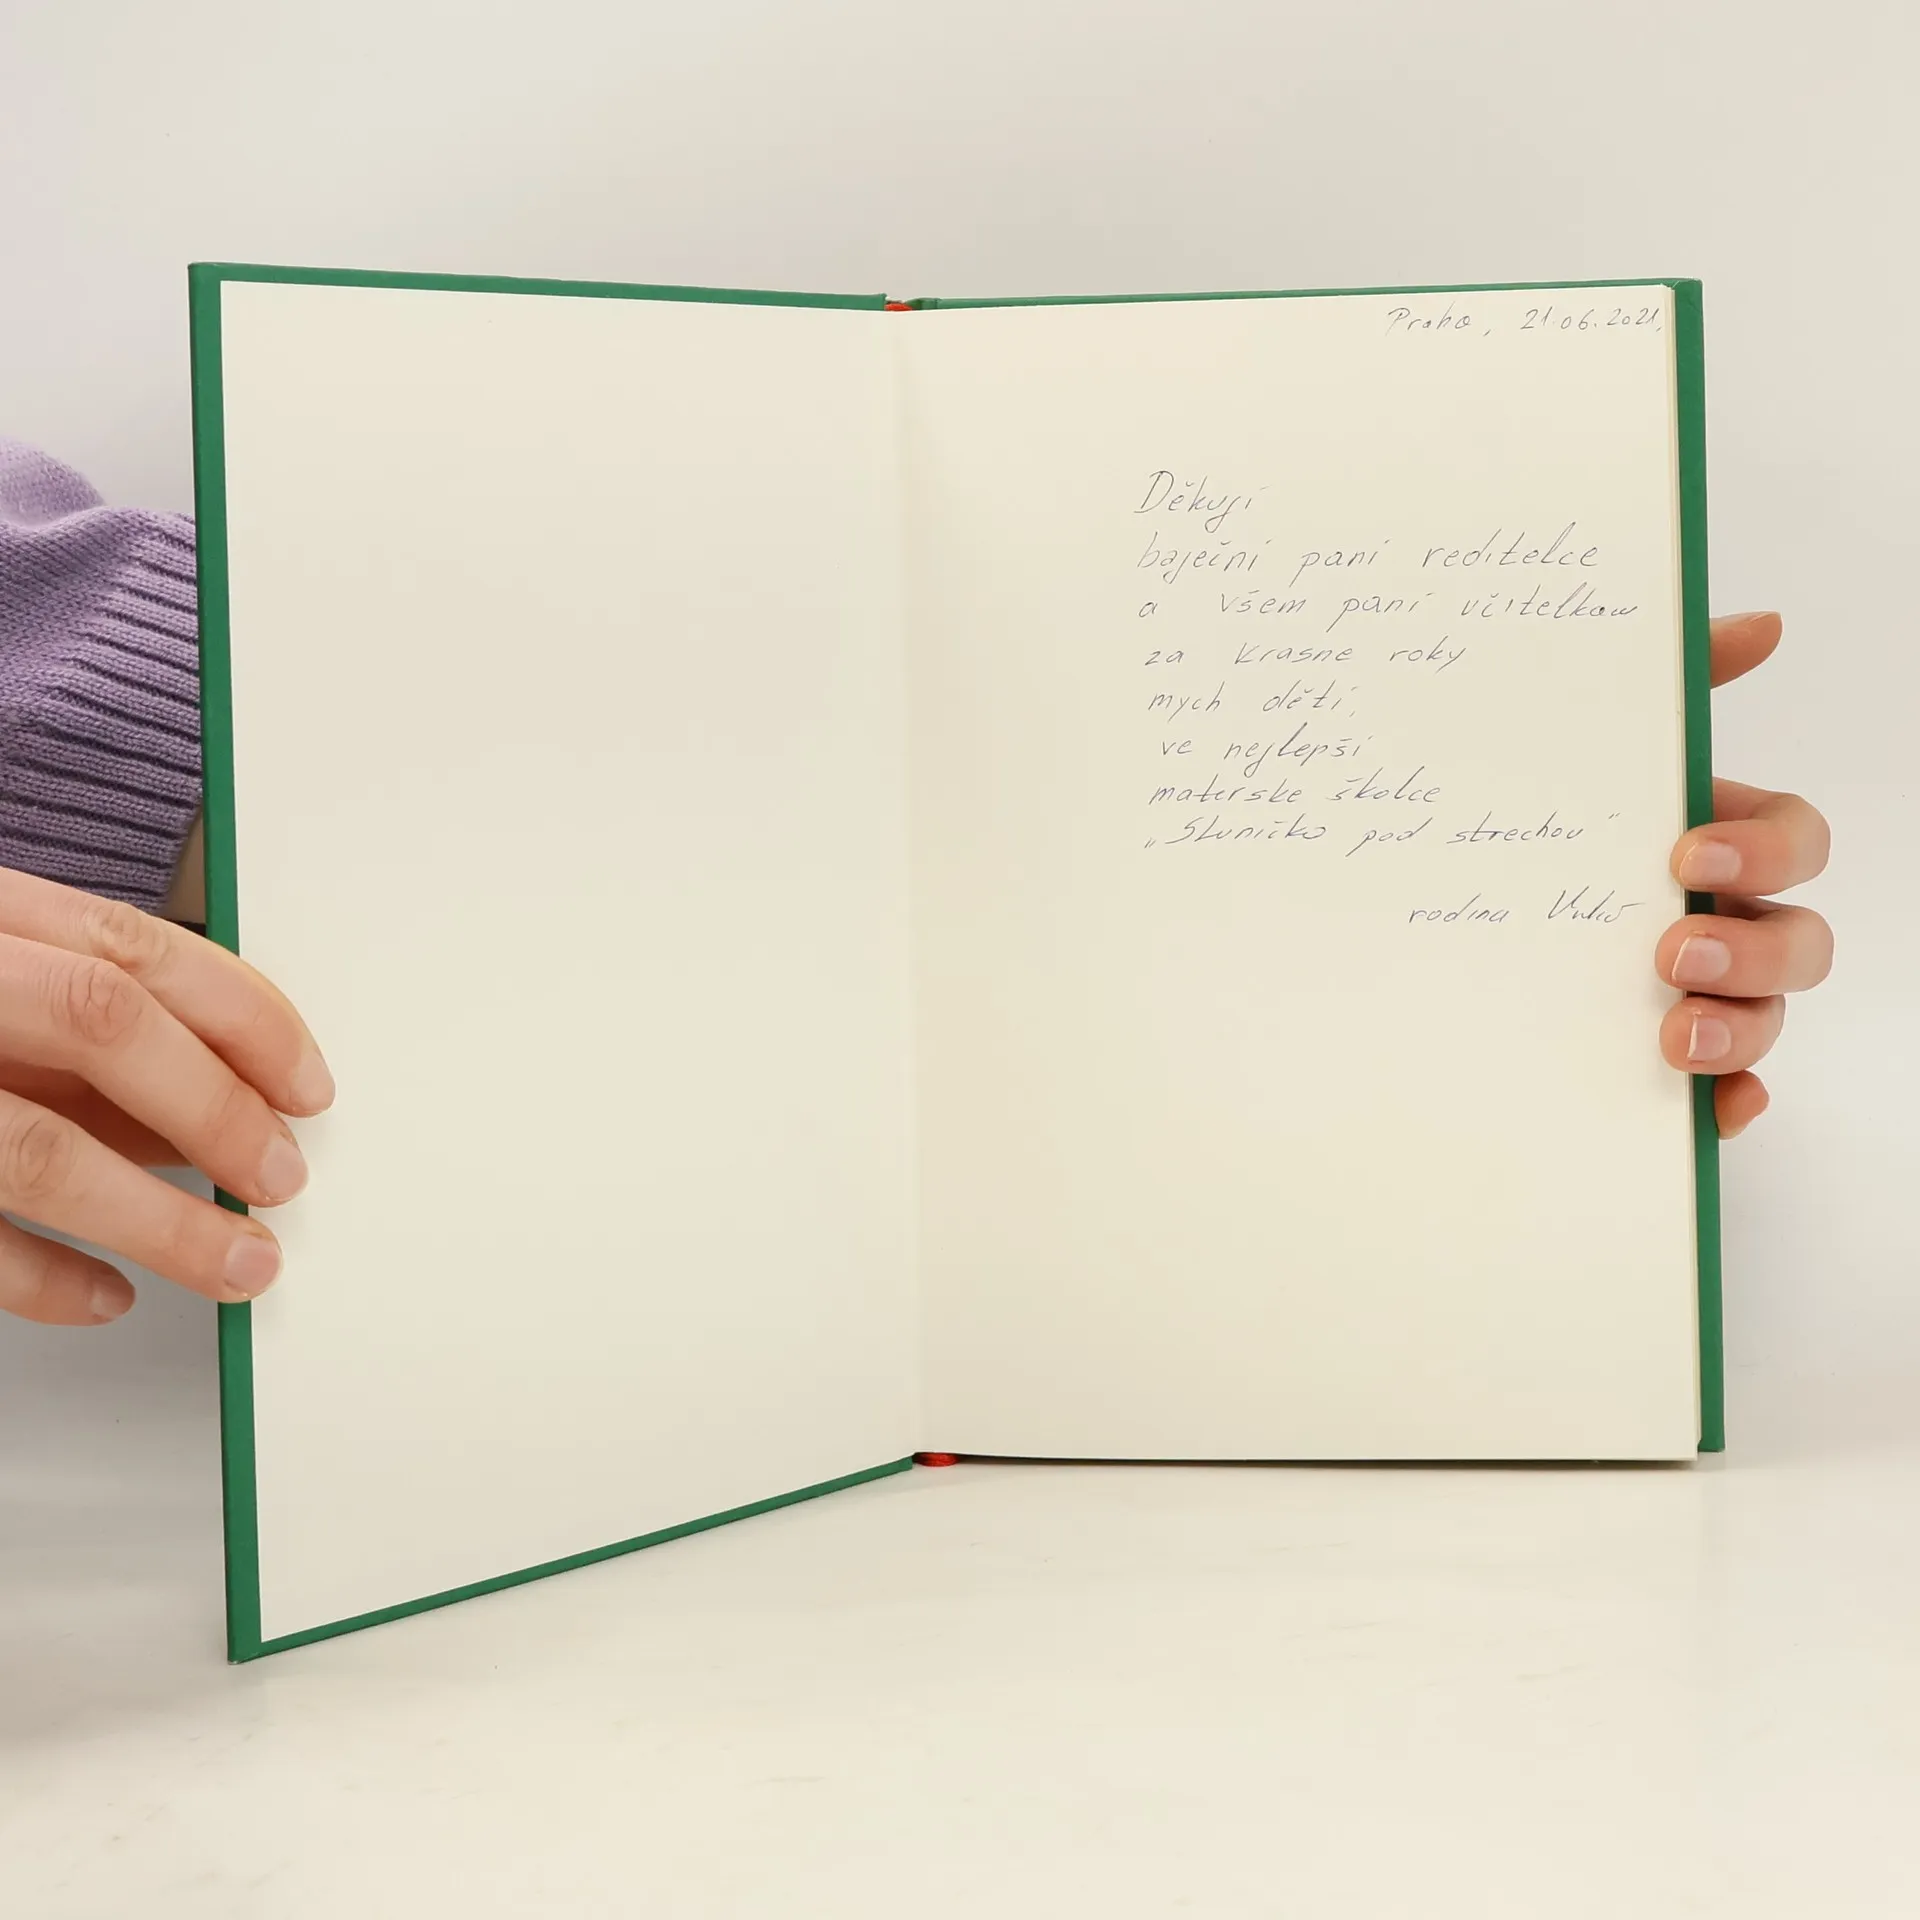 Praha, 21.06.2021,
Děkuji
baječni pani reditelce
a všem pani učitelkam
za krasne roky
mych děti,
ve nejlepši
materske školce
„Sluničko pod strechou"
rodina